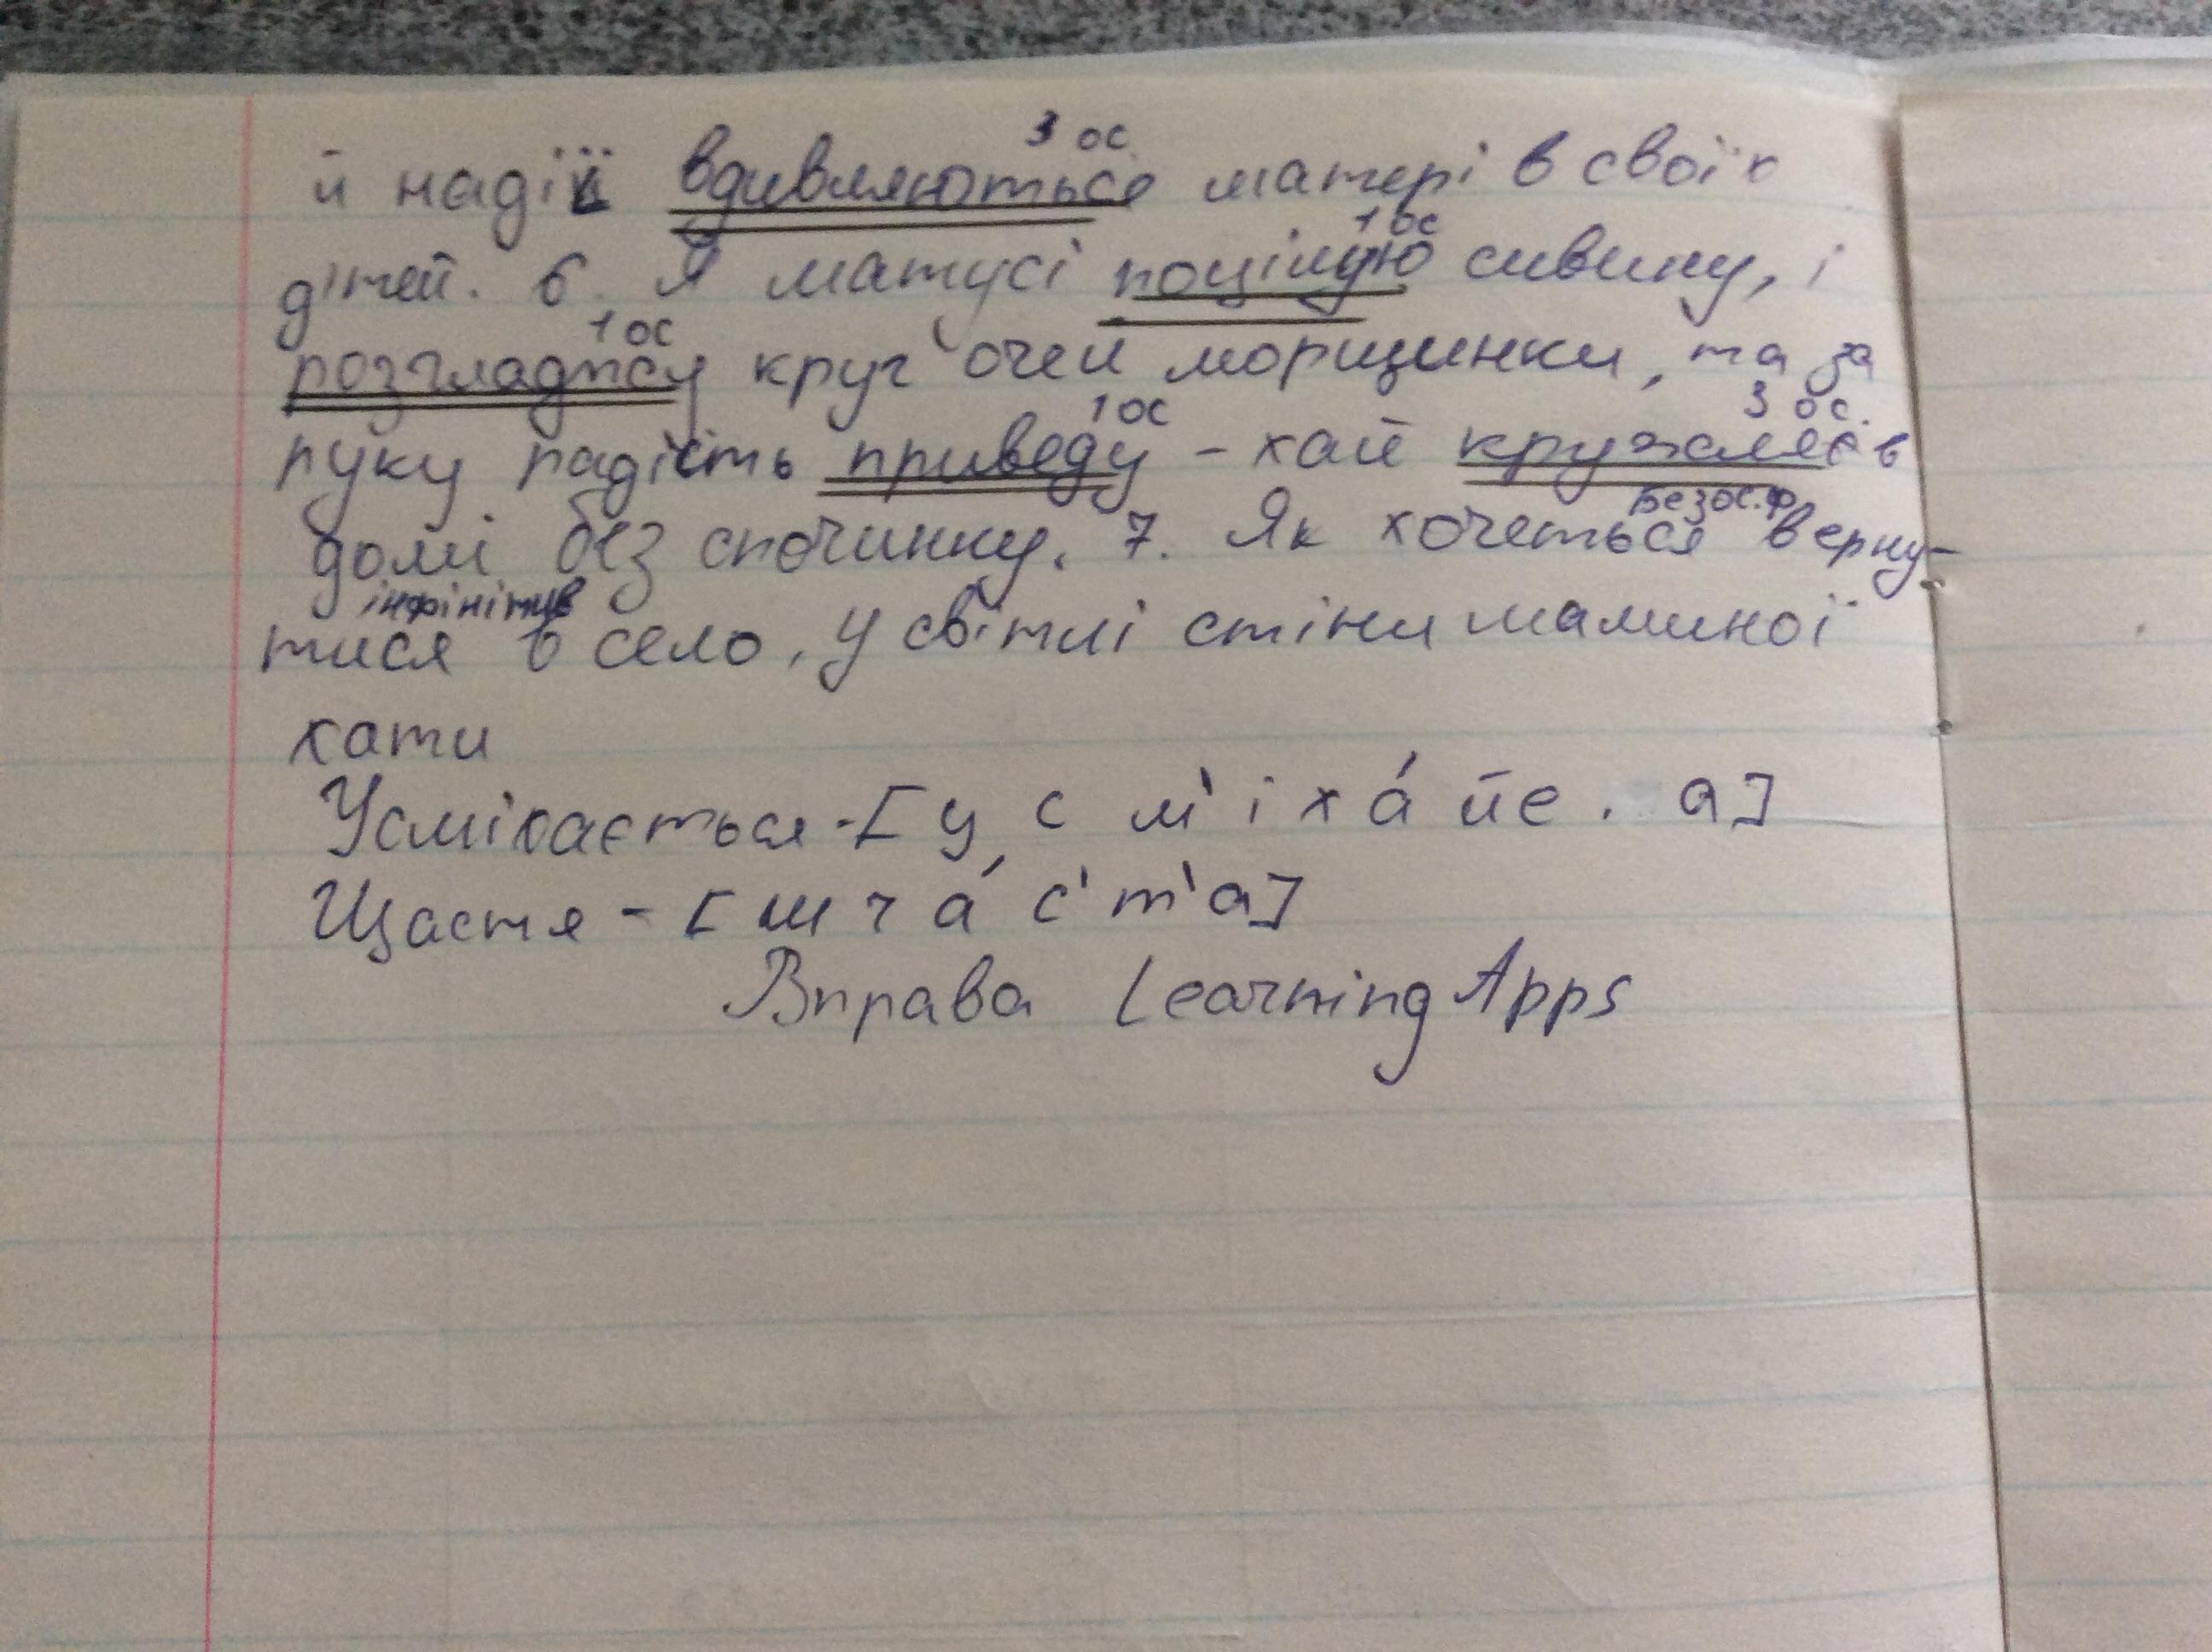 3 ос.
й надії вдивляються матері в своїх
1 ос
дітей. 6. Я матусі поцілую сивину, і
1 ос
розгладжу круг очей морщинки, та за
1 ос 3 ос.
руку радість приведу - хай кружляє в
безос.ф
домі без спочинку. 7. Як хочеться верну-
інфінітив
тися в село, у світлі стіни маминої
хати
Усміхається - [у с м' і х а́ й е . а]
Щастя - [ш ч а́ с' т' а]
Вправа LearningApps